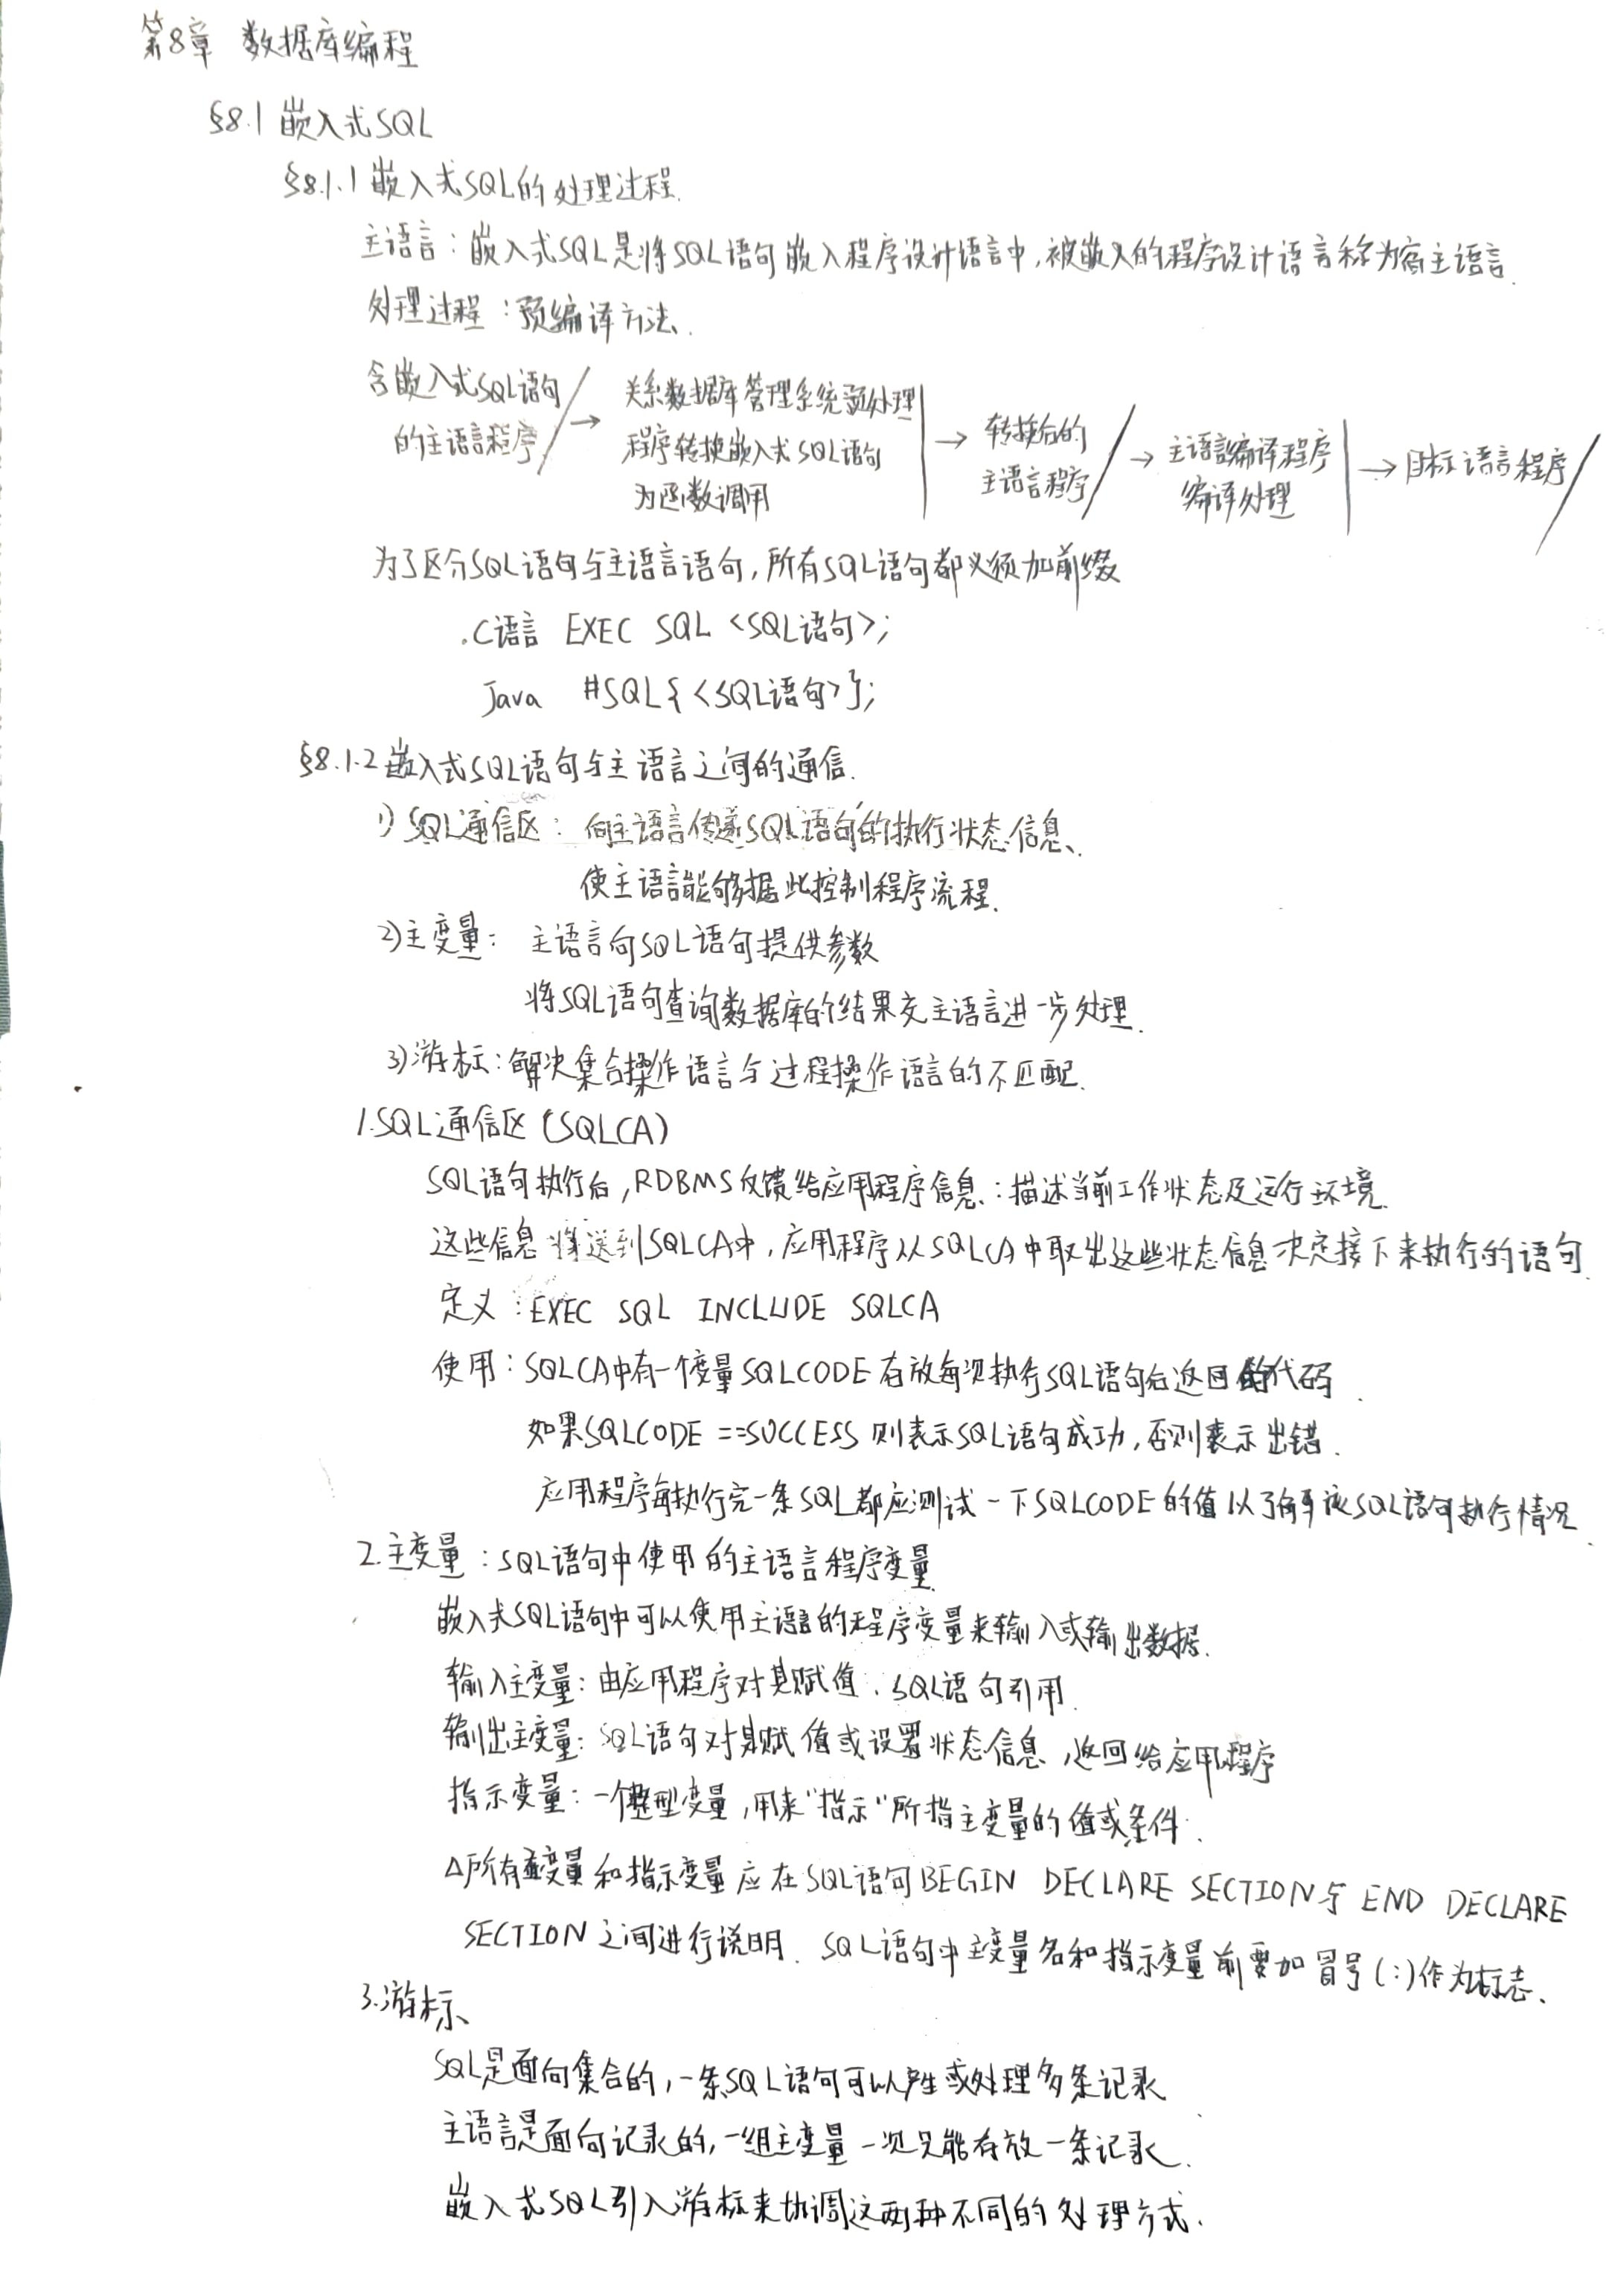 第8章 数据库编程
§8.1 嵌入式SQL
§8.1.1 嵌入式SQL的处理过程.
主语言：嵌入式SQL是将SQL语句嵌入程序设计语言中,被嵌入的程序设计语言称为宿主语言.
处理过程：预编译方法.
含嵌入式SQL语句
的主语言程序
→
关系数据库管理系统预处理
程序转换嵌入式SQL语句
为函数调用
→
转换后的
主语言程序
→
主语言编译程序
编译处理
→ 目标语言程序
为了区分SQL语句与主语言语句,所有SQL语句都必须加前缀
.C语言 EXEC SQL <SQL语句>;
Java #SQL{<SQL语句>};
§8.1.2 嵌入式SQL语句与主语言之间的通信.
1) SQL通信区：向主语言传递SQL语句的执行状态信息、
使主语言能够据此控制程序流程.
2)主变量：主语言向SQL语句提供参数
将SQL语句查询数据库的结果交主语言进一步处理.
3)游标：解决集合操作语言与过程操作语言的不匹配.
1.SQL通信区(SQLCA)
SQL语句执行后,RDBMS反馈给应用程序信息：描述当前工作状态及运行环境.
这些信息将送到SQLCA中,应用程序从SQLCA中取出这些状态信息决定接下来执行的语句.
定义：EXEC SQL INCLUDE SQLCA
使用：SQLCA中有一个变量SQLCODE存放每次执行SQL语句后返回的代码.
如果SQLCODE ==SUCCESS则表示SQL语句成功,否则表示出错.
应用程序每执行完一条SQL都应测试一下SQLCODE的值以了解该SQL语句执行情况.
2.主变量：SQL语句中使用的主语言程序变量.
嵌入式SQL语句中可以使用主语言的程序变量来输入或输出数据.
输入主变量：由应用程序对其赋值.SQL语句引用.
输出主变量：SQL语句对其赋值或设置状态信息,返回给应用程序
指示变量：一个整型变量,用来"指示"所指主变量的值或条件.
△所有主变量和指示变量应在SQL语句BEGIN DECLARE SECTION与END DECLARE
SECTION之间进行说明.SQL语句中主变量名和指示变量前要加冒号(:)作为标志、
3.游标
SQL是面向集合的,一条SQL语句可以产生或处理多条记录
主语言是面向记录的,一组主变量一次只能存放一条记录.
嵌入式SQL引入游标来协调这两种不同的处理方式.